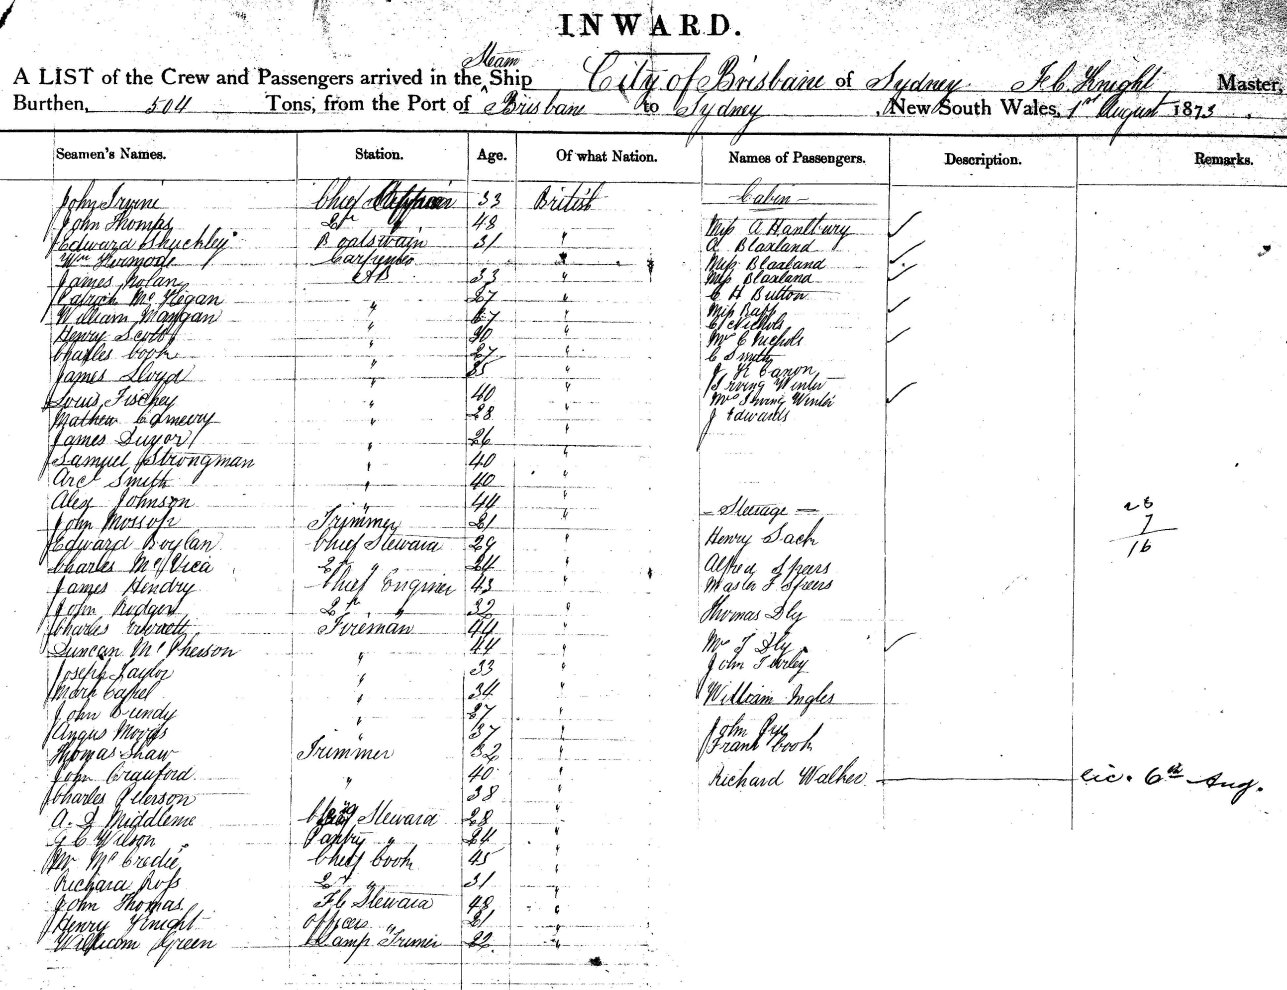 INWARD.
Steam
A LIST of the Crew and Passengers arrived in the Ship City of Brisbane of Sydney F C Knight Master,
Burthen, 504 Tons, from the Port of Brisbane to Sydney , New South Wales, 1st August 1873 .
Seamen's Names. Station. Age. Of what Nation. Names of Passengers. Description. Remarks.
John Irvine Chief Officer 33 British — Cabin —
John Thomas 2nd " 48 Miss A Hanbury ✓
Edward Boatswain 31 " A Blaxland
Wm Kermode Carpenter " Miss Blaxland ✓
James Nolan AB 33 " Miss Blaxland ✓
Patrick Mc " 27 " C H Button
William Mangan " 27 " Miss Rapp ✓
Henry Scott " 30 " C Nichols
Charles Cook " 27 " Mrs C Nichols ✓
James Lloyd " 35 " C Smith
Louis " 40 " J K Canon
Mathew " 28 " Irving Winter
James " 26 " Mrs Irving Winter ✓
Samuel Strongman " 40 " J Edwards
Arc Smith " 40 "
Alex Johnson " 44 "
John Mossop Trimmer 21 " — Steerage —
Edward Boylan Chief Steward 29 " Henry Sach
Charles McVica 2nd " 24 " Alfred Speers
James Hendry Chief Engineer 43 " Master F Speers
John Rodger 2nd " 32 " Thomas Dly
Charles Everett Fireman 44 "
Duncan McPherson " 44 " Mrs T Dly ✓
Joseph Taylor " 33 " John
Mark Capel " 34 " William Ingles
John Dundy " 27 "
Angus " 37 " John Pye
Thomas Shaw Trimmer 32 " Frank Cook
John Crawford " 40 " Richard Walker — lic. 6th Aug.
Charles Peterson " 38 "
A. D Middleme Steward 28 "
G C Wilson Pantry " 24 "
Mc Credie Chief Cook 45 "
Richard Ross 2nd " 31 "
John Thomas F C Steward 48 "
Henry Knight Officers " 21 "
William Green Lamp Trimer 22 "
28
7
16